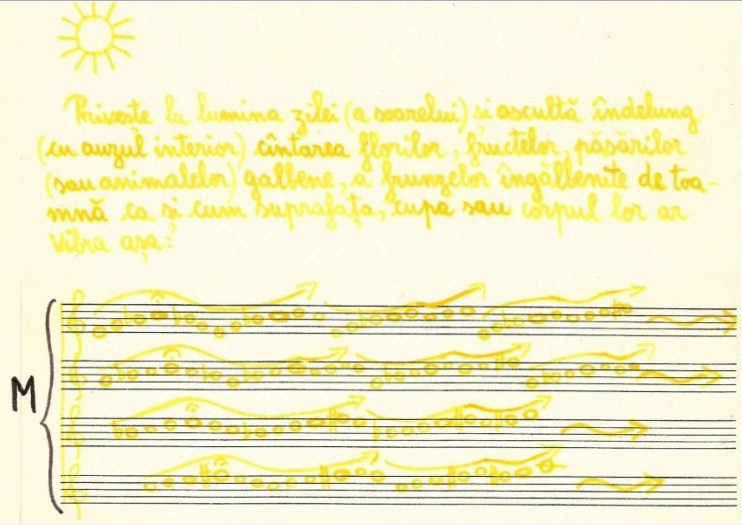 Privește la lumina zilei (a soarelui) si ascultă îndelung
(cu auzul interior) cîntarea florilor, fructelor, păsărilor
(sau animalelor) galbene, a frunzelor îngălbenite de toa-
mnă ca si cum suprafața, cupa sau corpul lor ar
vibra așa:
M